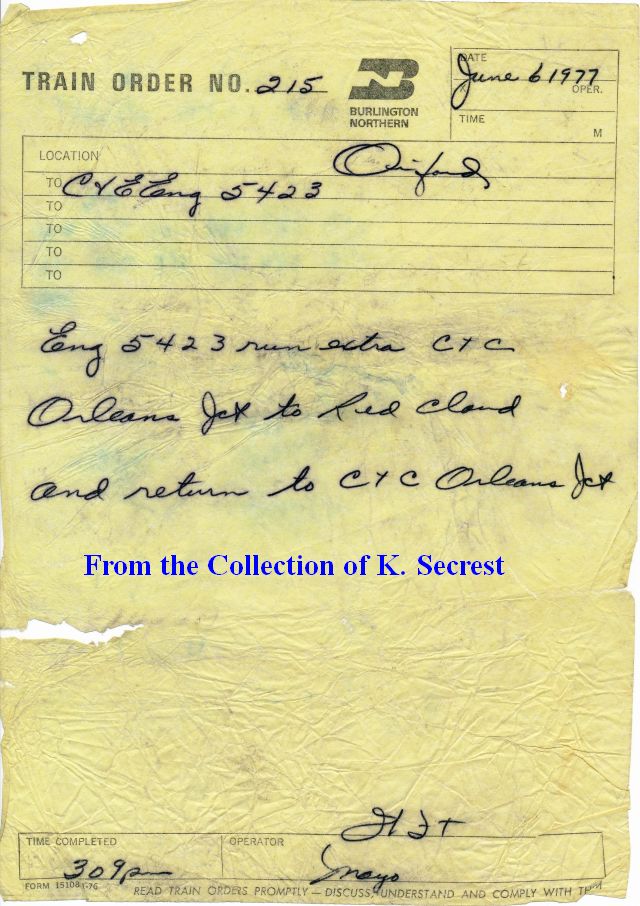 TRAIN ORDER NO. 215
BURLINGTON
NORTHERN
DATE
June 6 1977
OPER.
TIME
M
LOCATION
Oxford
TO C & E Eng 5423
TO
TO
TO
TO
Eng 5423 run extra CTC
Orleans Jct to Red Cloud
and return to CTC Orleans Jct
From the Collection of K. Secrest
TIME COMPLETED
309 pm
OPERATOR
Mayo
FORM 15108 1-76
READ TRAIN ORDERS PROMPTLY — DISCUSS, UNDERSTAND AND COMPLY WITH THEM